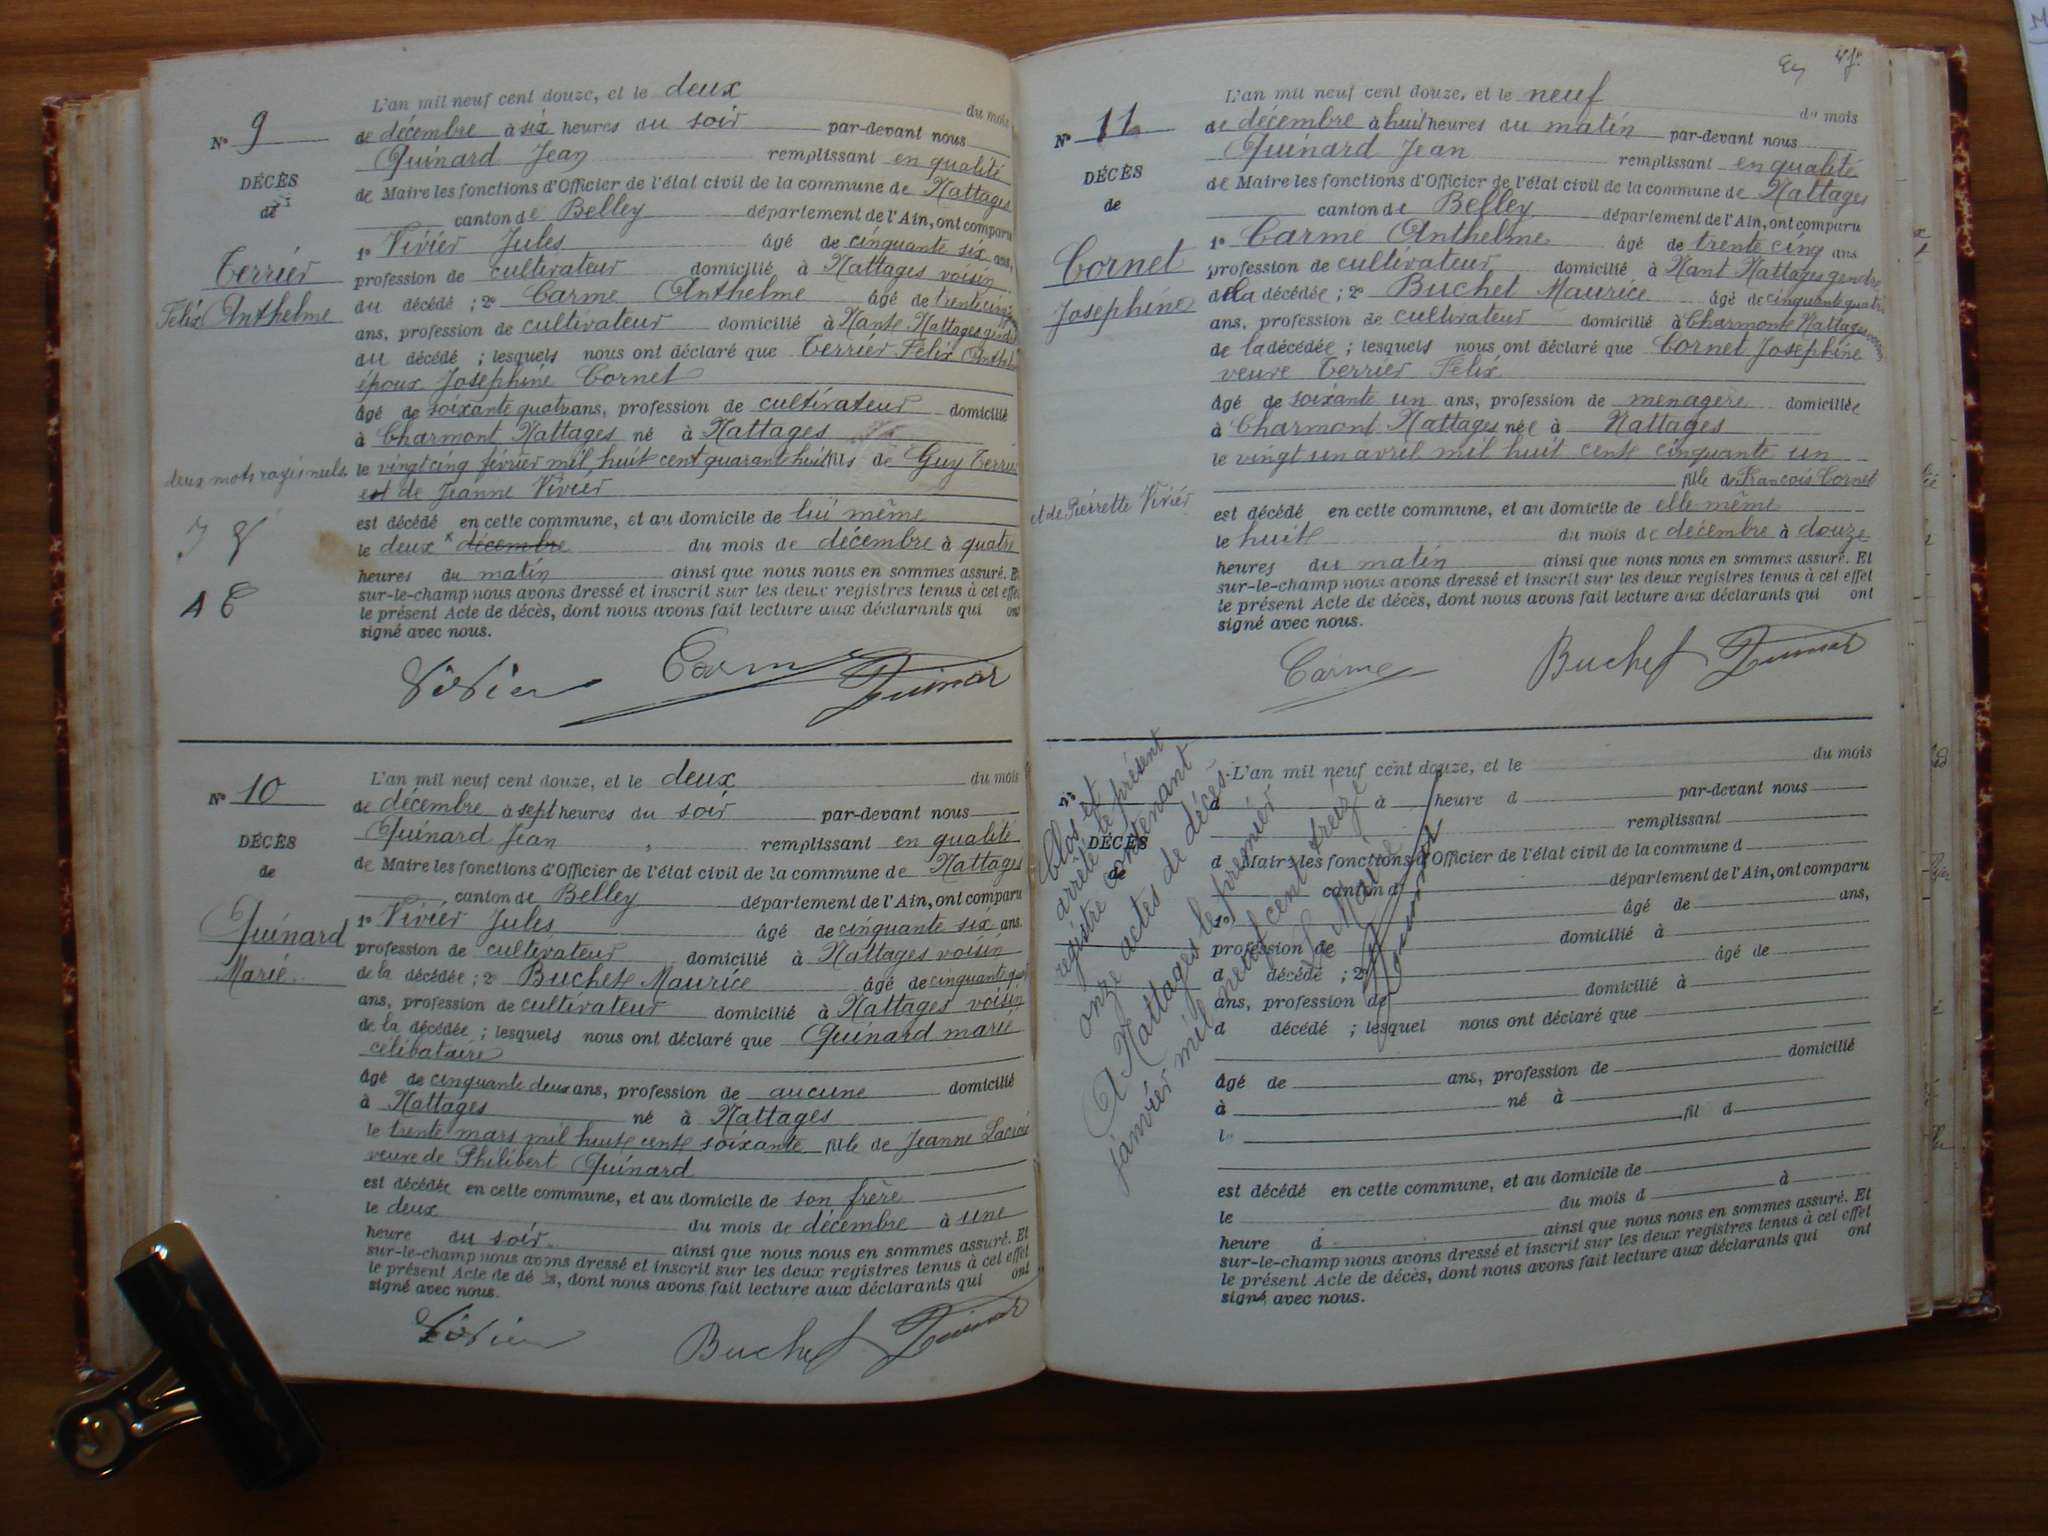 L'an mil neuf cent douze, et le deux du mois
N° 9 de décembre à six heures du soir par-devant nous
Quinard Jean remplissant en qualité
DÉCÈS de Maire les fonctions d'Officier de l'état civil de la commune de Nattages
de canton de Belley département de l'Ain, ont comparu
1° Vivier Jules âgé de cinquante six ans,
Terrier profession de cultivateur domicilié à Nattages voisin
Félix Anthelme du décédé ; 2° Carme Anthelme âgé de trente cinq
ans, profession de cultivateur domicilié à Nant Nattages gendre
du décédé ; lesquels nous ont déclaré que Terrier Félix Anthelme
époux Josephine Cornet
âgé de soixante quatre ans, profession de cultivateur domicilié
à Charmont Nattages né à Nattages
deux mots rayés nuls le vingt cinq février mil huit cent quarante huit fils de Guy Terrier
et de Jeanne Vivier
est décédé en cette commune, et au domicile de lui même
le deux décembre du mois de décembre à quatre
heures du matin ainsi que nous nous en sommes assuré. Et
sur-le-champ nous avons dressé et inscrit sur les deux registres tenus à cet effet
le présent Acte de décès, dont nous avons fait lecture aux déclarants qui ont
signé avec nous.
Vivier Carme Quinard
L'an mil neuf cent douze, et le deux du mois
N° 10 de décembre à sept heures du soir par-devant nous
Quinard Jean remplissant en qualité
DÉCÈS de Maire les fonctions d'Officier de l'état civil de la commune de Nattages
de canton de Belley département de l'Ain, ont comparu
1° Vivier Jules âgé de cinquante six ans.
Quinard profession de cultivateur domicilié à Nattages voisin
Marie de la décédée ; 2° Buchet Maurice âgé de cinquante quatre
ans, profession de cultivateur domicilié à Nattages voisin
de la décédée ; lesquels nous ont déclaré que Quinard marie
célibataire
âgé de cinquante deux ans, profession de aucune domicilié
à Nattages né à Nattages
le trente mars mil huit cent soixante fille de Jeanne Lacroix
veuve de Philibert Quinard
est décédée en cette commune, et au domicile de son frère
le deux du mois de décembre à une
heure du soir ainsi que nous nous en sommes assuré. Et
sur-le-champ nous avons dressé et inscrit sur les deux registres tenus à cet effet
le présent Acte de décès, dont nous avons fait lecture aux déclarants qui ont
signé avec nous.
Vivier Buchet Quinard
L'an mil neuf cent douze, et le neuf du mois
N° 11 de décembre à huit heures du matin par-devant nous
Quinard Jean remplissant en qualité
DÉCÈS de Maire les fonctions d'Officier de l'état civil de la commune de Nattages
de canton de Belley département de l'Ain, ont comparu
1° Carme Anthelme âgé de trente cinq ans
Cornet profession de cultivateur domicilié à Nant Nattages gendre
Josephine de la décédée ; 2° Buchet Maurice âgé de cinquante quatre
ans, profession de cultivateur domicilié à Charmont Nattages voisin
de la décédée ; lesquels nous ont déclaré que Cornet Joséphine
veuve Terrier Félix
âgé de soixante un ans, profession de menagère domiciliée
à Charmont Nattages née à Nattages
le vingt un avril mil huit cent cinquante un
fille de François Cornet
et de Pierrette Vivier est décédé en cette commune, et au domicile de elle même
le huit du mois de décembre à douze
heures du matin ainsi que nous nous en sommes assuré. Et
sur-le-champ nous avons dressé et inscrit sur les deux registres tenus à cet effet
le présent Acte de décès, dont nous avons fait lecture aux déclarants qui ont
signé avec nous.
Carme Buchet Quinard
L'an mil neuf cent douze, et le du mois
N° d à heure d par-devant nous
remplissant
DÉCÈS d Maire les fonctions d'Officier de l'état civil de la commune d
de canton d département de l'Ain, ont comparu
1° âgé de ans,
profession de domicilié à
d décédé ; 2° âgé de
ans, profession de domicilié à
d décédé ; lesquel nous ont déclaré que
âgé de ans, profession de domicilié
à né à
le fil d
est décédé en cette commune, et au domicile de
le du mois d à
heure d ainsi que nous nous en sommes assuré. Et
sur-le-champ nous avons dressé et inscrit sur les deux registres tenus à cet effet
le présent Acte de décès, dont nous avons fait lecture aux déclarants qui ont
signé avec nous.
Clos et
arrêté le présent
registre contenant
onze actes de décès.
A Nattages le premier
janvier mil neuf cent treize
Le Maire
Quinard